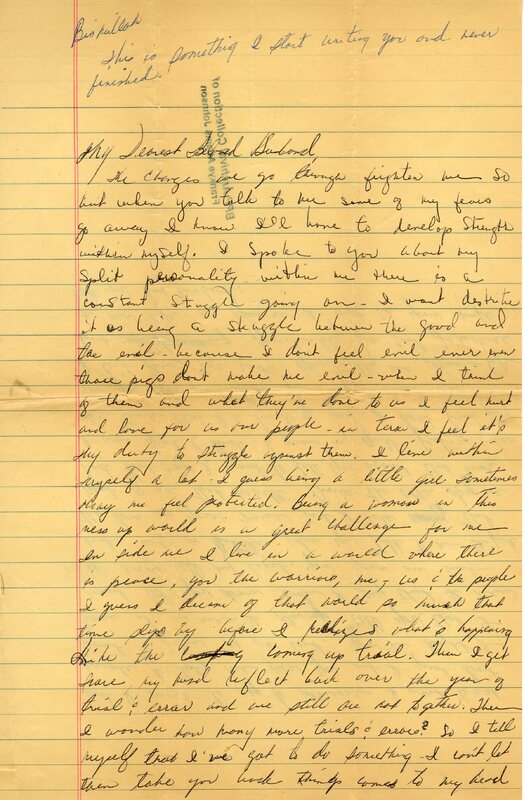 Bismillah
This is something I start writing you and never
finished.
BPP Archival Collection of
Fransye Adams Johnson
My Dearest Husband,
The changes we go through frighten me so
but when you talk to me some of my fears
go away I know I'll have to develop strength
within myself. I spoke to you about my
split personality within me there is a
constant struggle going on - I want destribe
it as being a struggle between the good and
the evil - because I don't feel evil ever even
those pigs dont make me evil - when I think
of them and what they've done to us I feel hurt
and love for us our people - in turn I feel it's
my duty to struggle against them. I live within
myself a lot - I guess being a little girl sometimes
make me feel protected. Being a woman in this
mess up world is a great challenge for me
In side me I live in a world where there
is peace, you the warriors, me, us & the people
I guess I dream of that world so much that
time slips by before I realized what's happening
like the coming up trial. Then I get
scare my mind reflect back over the year of
trial & error and we still are not together. Then
I wonder how many more trials & errors? So I tell
myself that I've got to do something - I can't let
them take you back things comes to my head